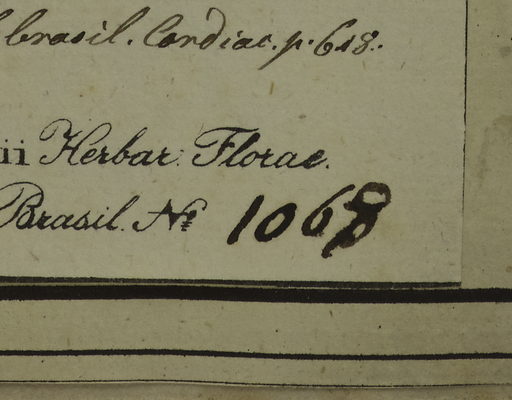 brasil. Cordiac. p. 618.
ii Herbar. Florae
Brasil. No 1068